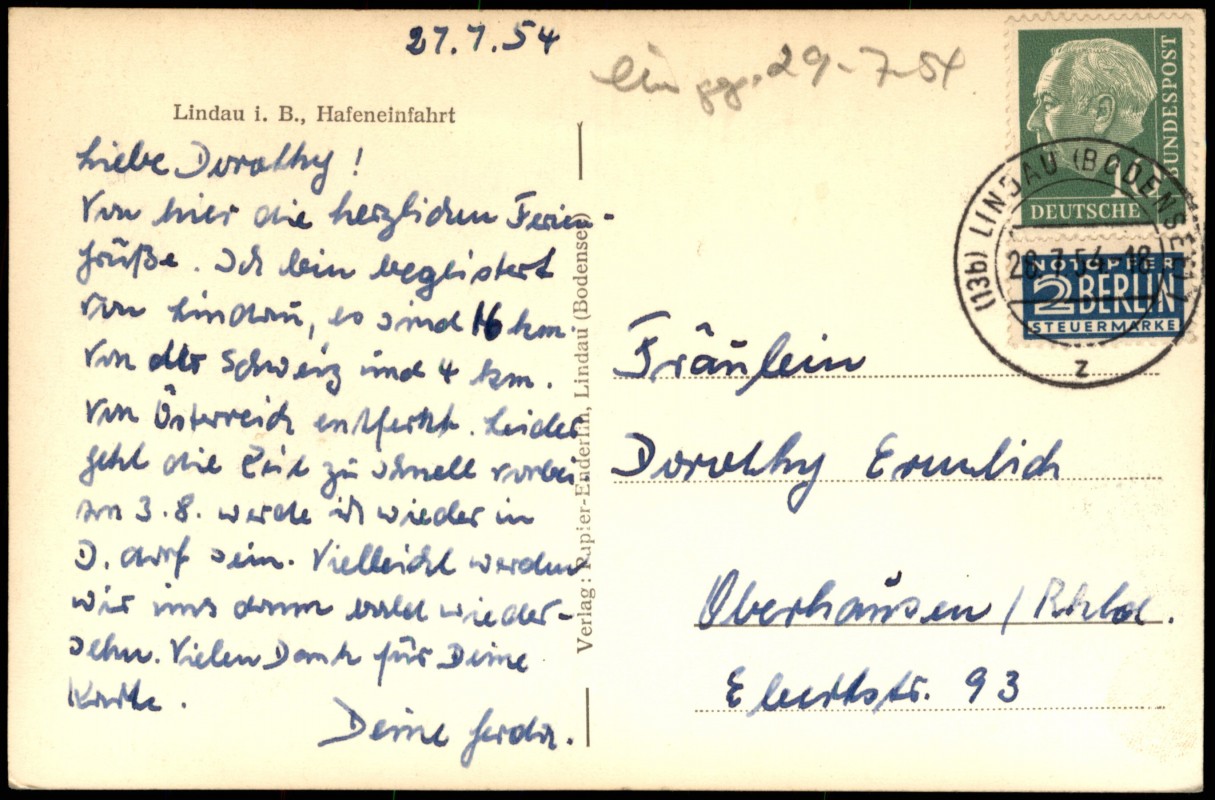 27.7.54
eingg. 29-7-54
Lindau i. B., Hafeneinfahrt
Liebe Dorothy!
Von hier die herzlichen Ferien-
grüße. Ich bin begeistert
von Lindau, es sind 16 km.
von der Schweiz und 4 km.
von Österreich entfernt. Leider
geht die Zeit zu schnell vorbei
am 3.8. werde ich wieder in
D.dorf sein. Vielleicht werden
wir uns dann bald wieder-
sehn. Vielen Dank für Deine
Karte.
Deine Gerda.
Verlag: Papier-Enderlin, Lindau (Bodensee)
BUNDESPOST
10
DEUTSCHE
NOTOPFER
2 BERLIN
STEUERMARKE
(13b) LINDAU (BODENSEE) 1
28.7.54.-18
z
Fräulein
Dorothy Ermlich
Oberhausen / Rhld.
Ebertstr. 93